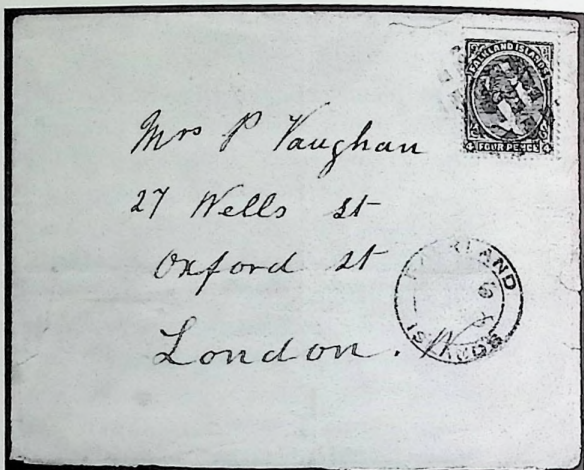 FALKLAND ISLANDS
4 FOUR PENCE 4
Mrs P Vaughan
27 Wells St
Oxford St
London. W
FALKLAND
ISLANDS